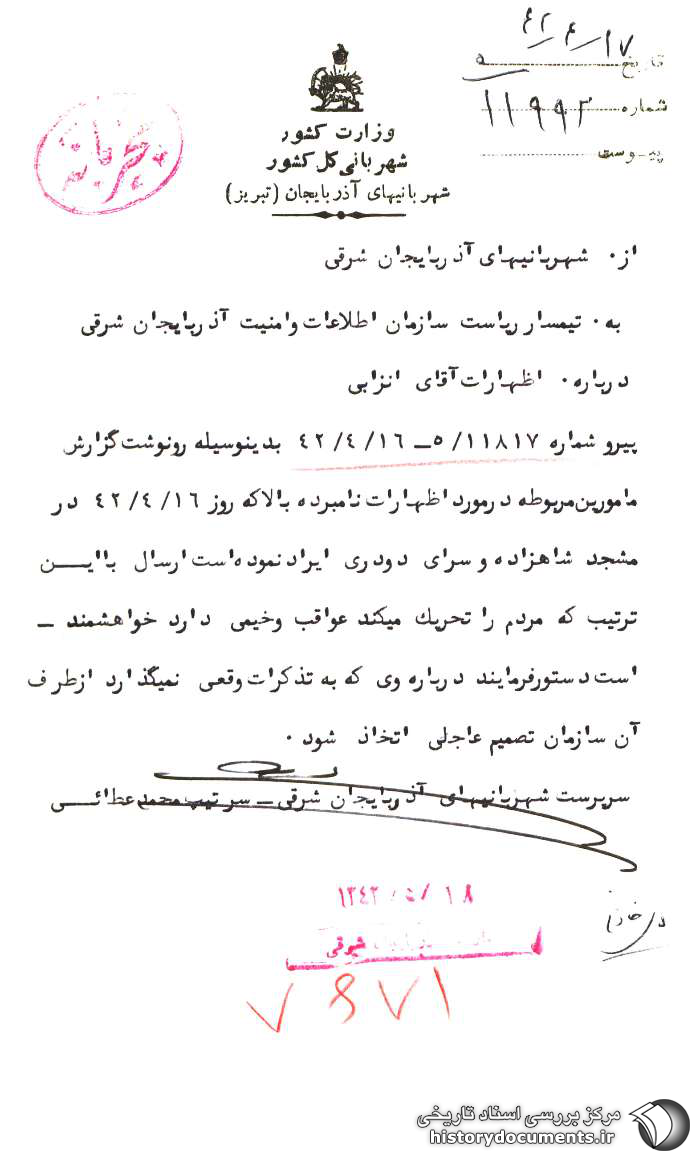 تاریخ ۴۲/۴/۱۷
۵
شماره ۱۱۹۹۲
پیوست
محرمانه
وزارت کشور
شهربانی کل کشور
شهربانیهای آذربایجان (تبریز)
از۰ شهربانیهای آذربایجان شرقی
به۰ تیمسار ریاست سازمان اطلاعات وامنیت آذربایجان شرقی
درباره۰ اظهارات آقای انزابی
پیرو شماره ۱۱۸۱۷/۵ــ ۴۲/۴/۱۶ بدینوسیله رونوشت گزارش
مامورین مربوطه درمورد اظهارات نامبرده بالاکه روز ۴۲/۴/۱۶ در
مشجد شاهزاده وسرای دودری ایراد نموده است ارسال باایــن
ترتیب که مردم را تحریك میکند عواقب وخیمی دارد خواهشمند ــ
است دستورفرمایند درباره وی که به تذکرات وقعی نمیگذارد ازطرف
آن سازمان تصمیم عاجلی اتخاذ شود ۰
سرپرست شهربانیهای آذربایجان شرقی ــ سرتیپ محمد عطائــی
۱۳۴۲/۵/۱۸
شرقی
۷۶۷۱
مرکز بررسی اسناد تاریخی
historydocuments.ir